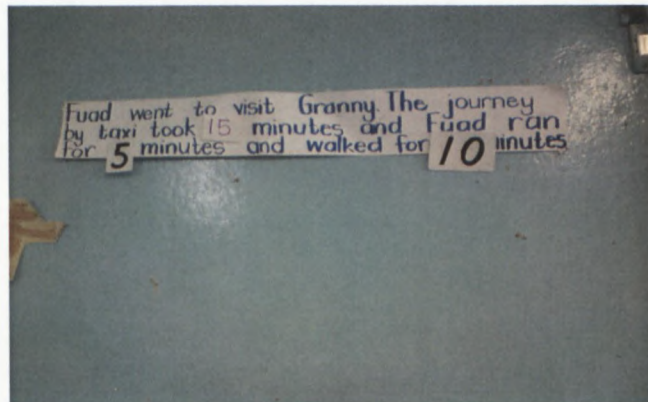 Fuad went to visit Granny. The journey
by taxi took 15 minutes and Fuad ran
for 5 minutes and walked for 10 inutes